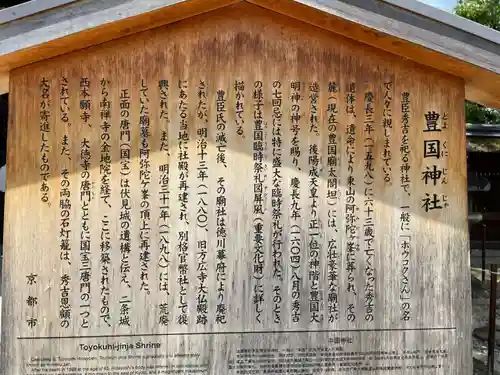 豊国神社
とよくにじんじゃ
豊臣秀吉を祀る神社で、一般に「ホウコクさん」の名
で人々に親しまれている。
慶長三年(一五九八)に六十三歳で亡くなった秀吉の
遺体は、遺命により東山の阿弥陀ケ峯に葬られ、その
麓(現在の豊国廟太閤坦)には、広壮豪華な廟社が
造営された。後陽成天皇より正一位の神階と豊国大
明神の神号を賜り、慶長九年(一六〇四)八月の秀吉
の七回忌には特に盛大な臨時祭礼が行われた。そのとき
の様子は豊国臨時祭礼図屏風(重要文化財)に詳しく
描かれている。
豊臣氏の滅亡後、その廟社は徳川幕府により廃祀
されたが、明治十三年(一八八〇)、旧方広寺大仏殿跡
にあたる当地に社殿が再建され、別格官幣社として復
興された。また、明治三十一年(一八九八)には、荒廃
していた廟墓も阿弥陀ケ峯の頂上に再建された。
正面の唐門(国宝)は伏見城の遺構と伝え、二条城
から南禅寺の金地院を経て、ここに移築されたもので、
西本願寺、大徳寺の唐門とともに国宝三唐門の一つと
されている。また、その両脇の石灯籠は、秀吉恩顧の
大名が寄進したものである。
京都市
Toyokuni-jinja Shrine
丰国神社